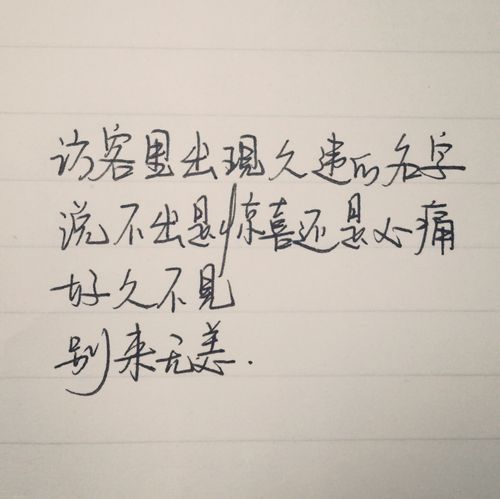 访客里出现久违的名字
说不出是惊喜还是心痛
好久不见
别来无恙.